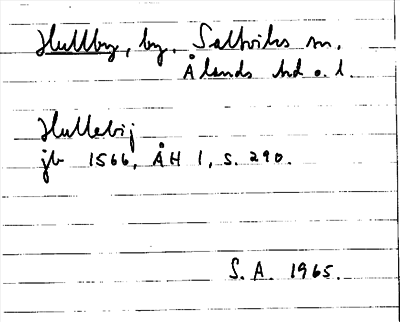 Hullby, by, Saltviks sn.
Ålands hd o. l.
Hullebij
jb 1566, ÅH 1, s. 290.
S. A. 1965.